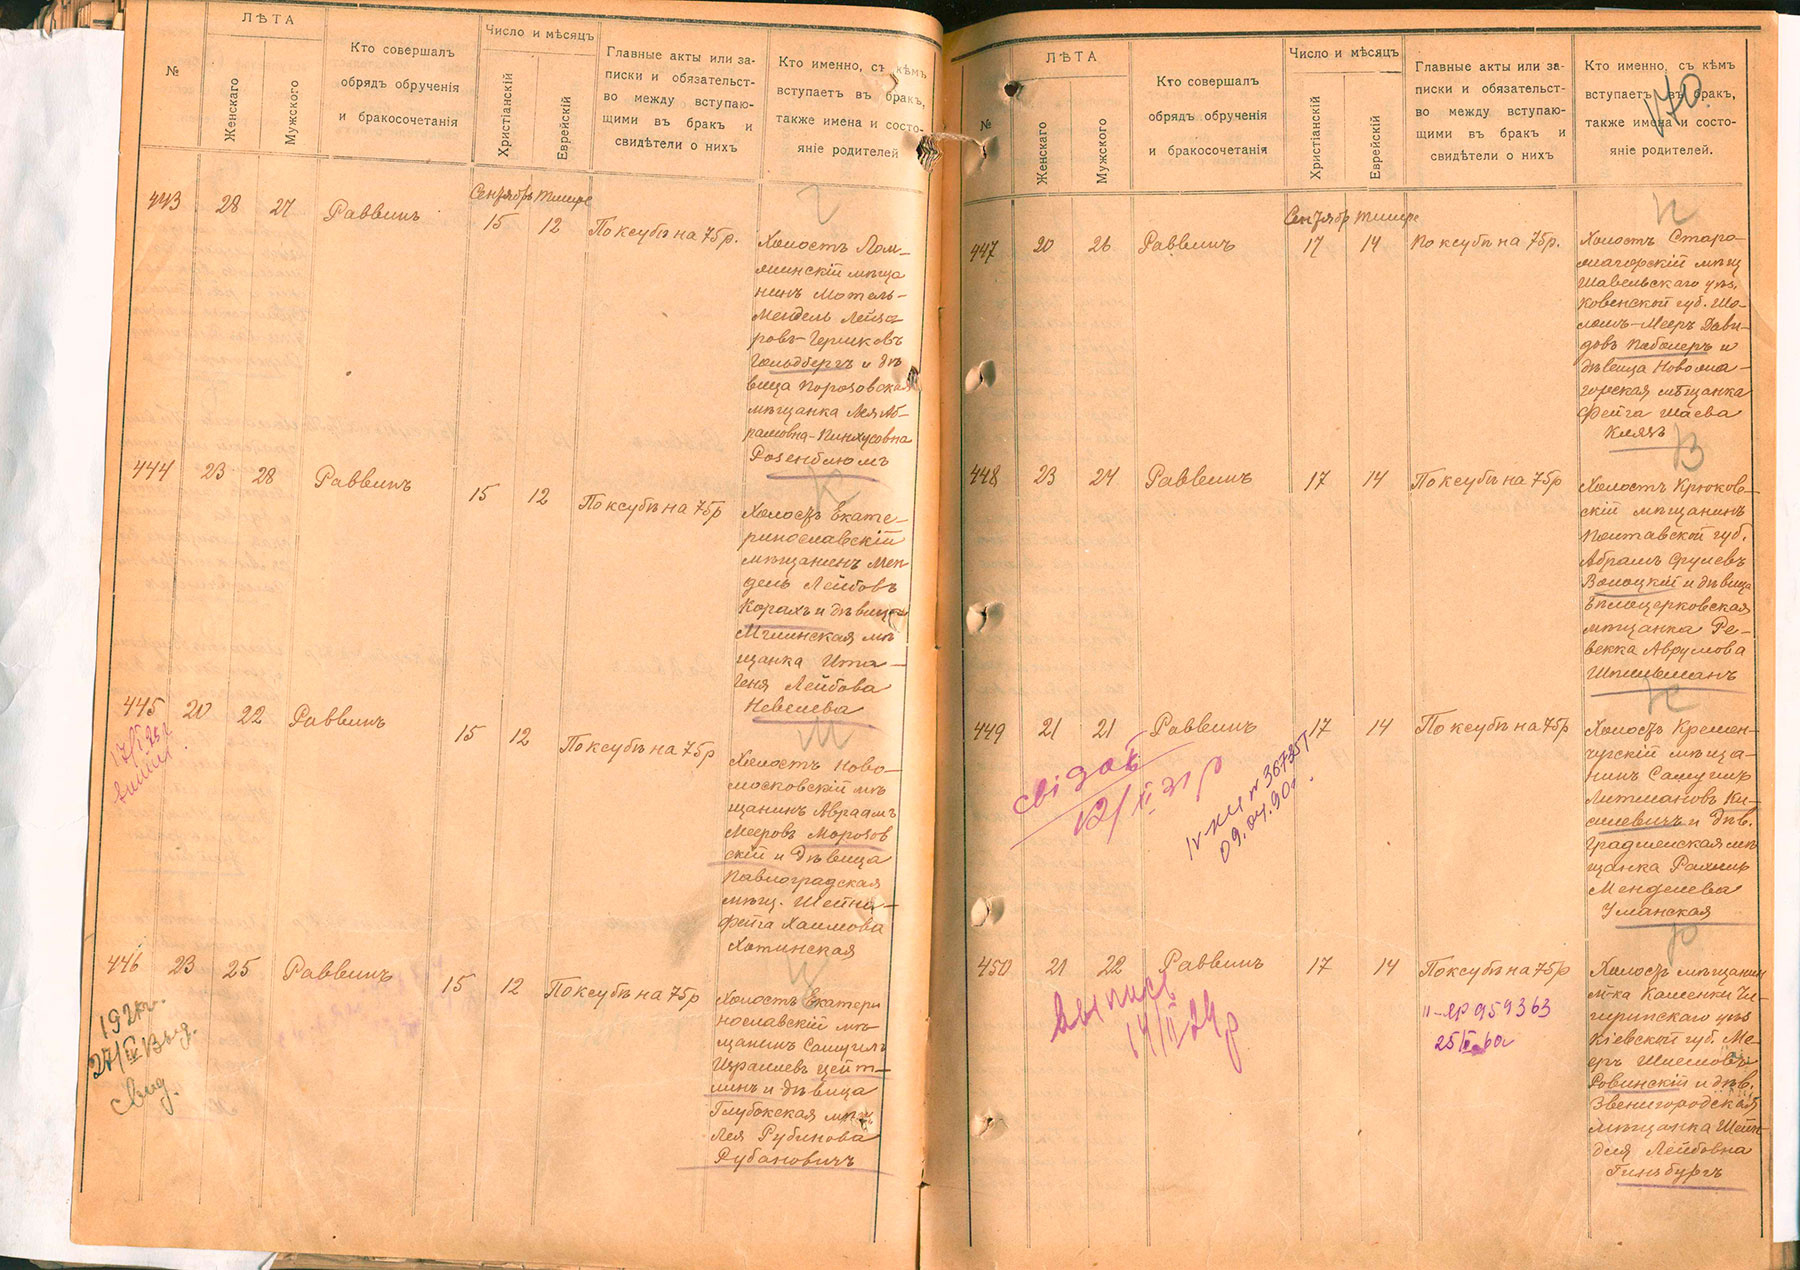 №
ЛѢТА
Женскаго
Мужского
Кто совершалъ
обрядъ обрученія
и бракосочетанія
Число и мѣсяцъ
Христіанскій
Еврейскій
Главные акты или за-
писки и обязательст-
во между вступаю-
щими въ бракъ и
свидѣтели о нихъ
Кто именно, съ кѣмъ
вступаетъ въ бракъ,
также имена и состо-
яніе родителей
Сентябрь Тишре
443 28 27 Раввинъ 15 12 По ксубѣ на 75 р.
Холостъ Лом-
жинскій мѣща
нинъ Мотель-
Мендель Лейза-
ровъ-Гершковъ
Гольдбергъ и дѣ
вица Порозовская
мѣщанка Лея Аб-
рамовна-Пинхусовна
Розенблюмъ
444 23 28 Раввинъ 15 12 По ксубѣ на 75 р
Холостъ Екате-
ринославскій
мѣщанинъ Мен
дель Лейбовъ
Корахъ и дѣвица
Мглинская мѣ
щанка Ита-
Геня Лейбова
Невелева
445 20 22 Раввинъ 15 12 По ксубѣ на 75 р
Холостъ Ново-
московскій мѣ
щанинъ Авраамъ
Мееровъ Морозов
скій и дѣвица
Павлоградская
мѣщ. Шейна-
Фейга Хаимова
Хотинская
446 23 25 Раввинъ 15 12 По ксубѣ на 75 р
192
27/IV Выд.
Свид.
Холостъ Екатери
нославскій мѣ
щанинъ Самуилъ
Израилевъ Цейт-
линъ и дѣвица
Глубокская мѣщ
Лея Рубинова
Рубановичъ
№
ЛѢТА
Женскаго
Мужского
Кто совершалъ
обрядъ обрученія
и бракосочетанія
Число и мѣсяцъ
Христіанскій
Еврейскій
Главные акты или за-
писки и обязательст-
во между вступаю-
щими въ бракъ и
свидѣтели о нихъ
Кто именно, съ кѣмъ
вступаетъ въ бракъ,
также имена и состо-
яніе родителей.
170
Сентябр Тишре
447 20 26 Раввинъ 17 14 По ксубѣ на 75 р.
Холостъ Старо-
жагорскій мѣщ
Шавельскаго уѣз.
Ковенской губ. Шо-
ломъ-Мееръ Дави-
довъ Паболеръ и
дѣвица Новожа-
горская мѣщанка
Фейга Шаева
448 23 24 Раввинъ 17 14 По ксубѣ на 75 р
Холостъ Крюков-
скій мѣщанинъ
Полтавской губ.
Абрамъ Срулевъ
Волоцкій и дѣвица
Бѣлоцерковская
мѣщанка Ре-
векка Аврумова
Шпильманъ
449 21 21 Раввинъ 17 14 По ксубѣ на 75 р
12/II 31 р
IV-КИ № 367351
09.04.90г.
Холостъ Кремен-
чугскій мѣща-
нинъ Самуилъ
Литмановъ Ки-
селевичъ и дѣв.
Градижская мѣ
щанка Рахиль
Менделева
Уманская
450 21 22 Раввинъ 17 14 По ксубѣ на 75 р
Выпись
14/II 24 р
II-ЯР 959363
Холостъ мѣщанин
м-ка Каменки Чи-
гиринскаго уѣз
Кіевской губ. Ме-
еръ Шлемовъ
Ровинскій и дѣв.
Звенигородская
мѣщанка Шейн-
для Лейбовна
Гинзбургъ